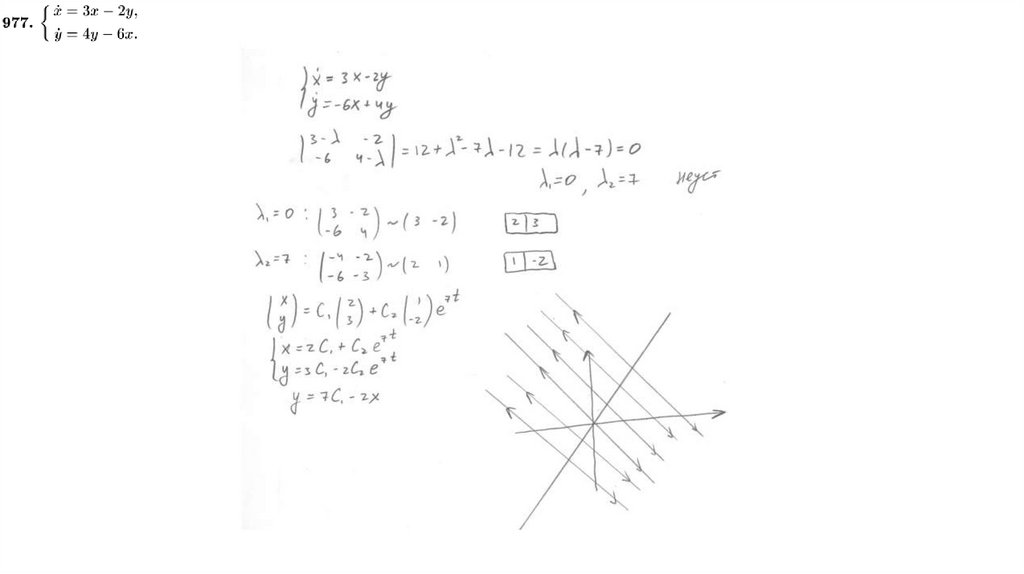 977. { ẋ = 3x − 2y,
ẏ = 4y − 6x.
{ ẋ = 3x-2y
ẏ = -6x+4y
| 3-λ -2 |
| -6 4-λ | = 12+λ²-7λ-12 = λ(λ-7)=0
λ₁=0, λ₂=7 неуст
λ₁=0 : ( 3 -2 ; -6 4 ) ~ (3 -2) 2 | 3
λ₂=7 : ( -4 -2 ; -6 -3 ) ~ (2 1) 1 | -2
( x ; y ) = C₁ ( 2 ; 3 ) + C₂ ( 1 ; -2 ) e^{7t}
{ x = 2C₁ + C₂e^{7t}
y = 3C₁ - 2C₂e^{7t}
y = 7C₁ - 2x